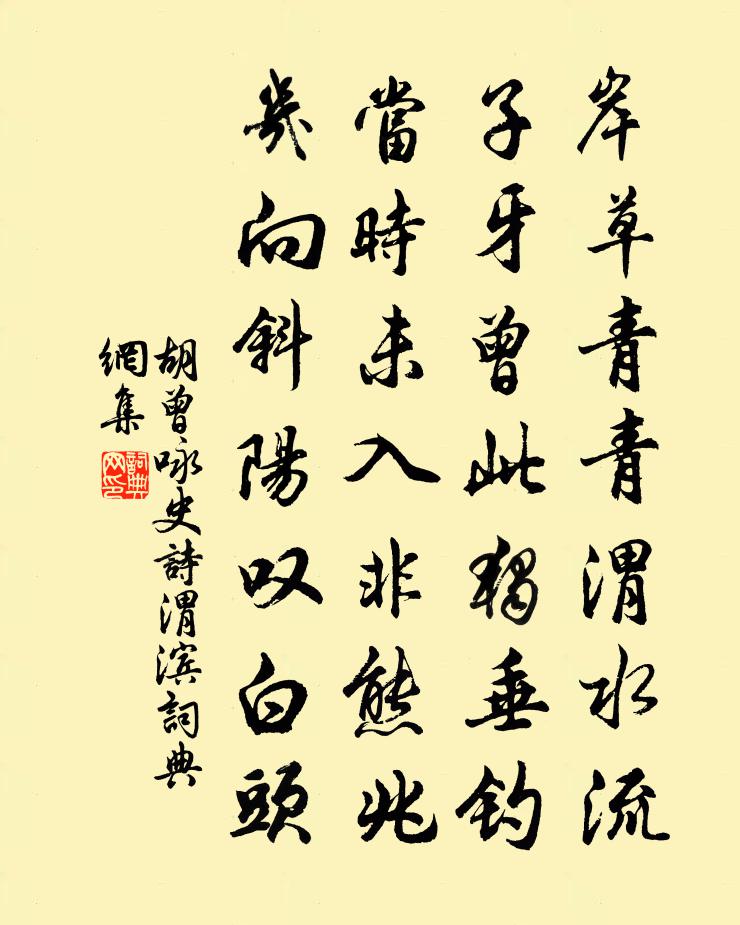 岸草青青渭水流
子牙曾此獨垂钓
當時未入非熊兆
幾向斜陽叹白頭
胡曾咏史詩渭滨詞典
網集
詞典
网印